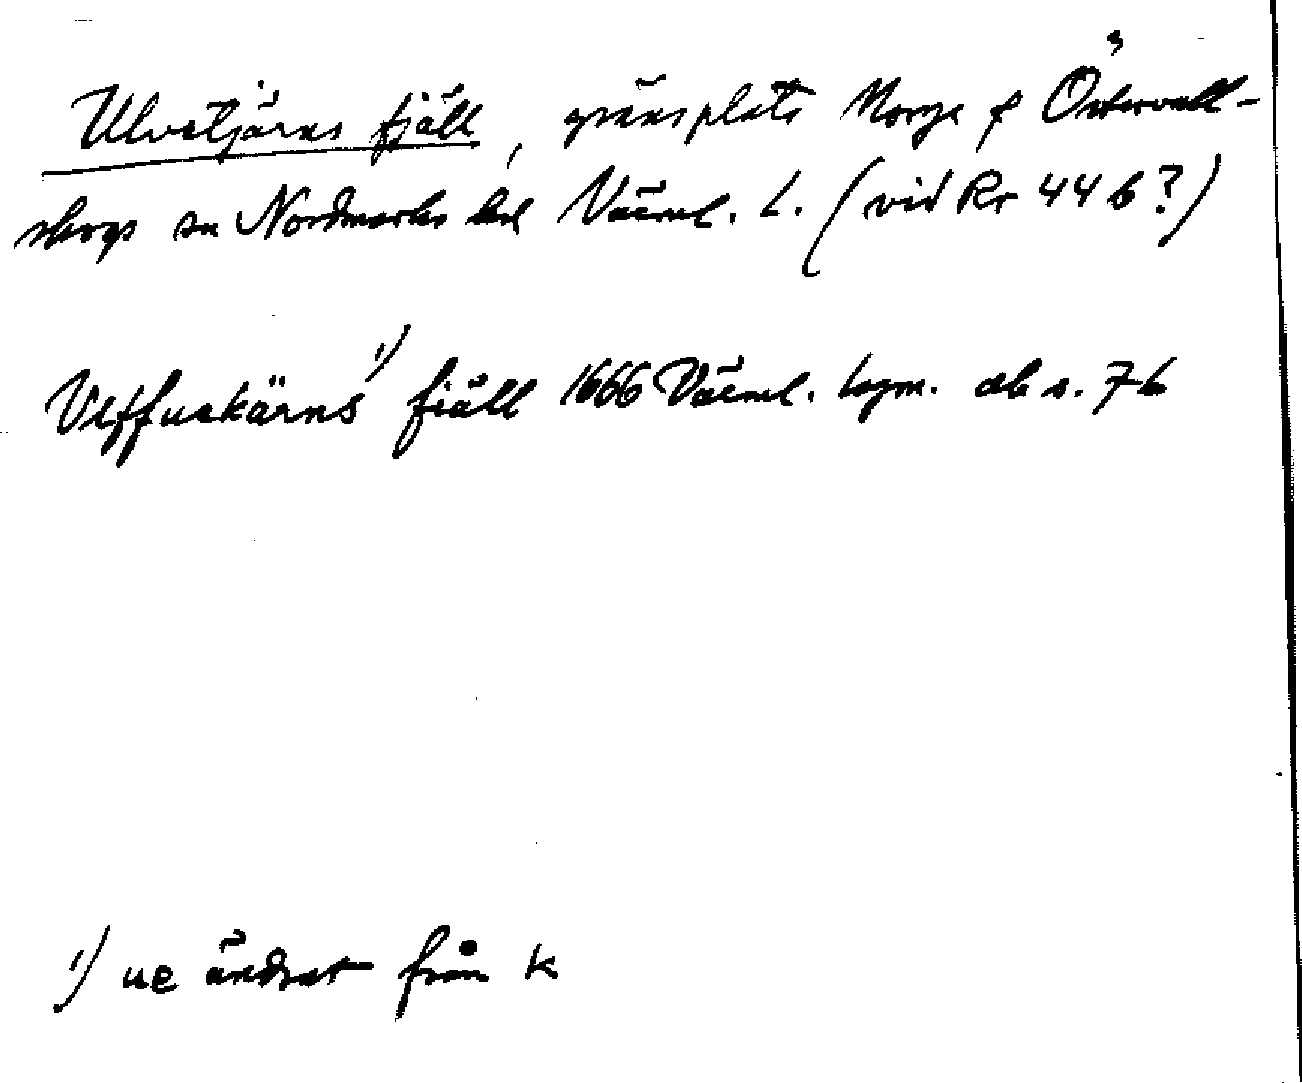 Ulvetjärns fjäll, gränsplats Norge o Östervall-
skogs sn Nordmarks hd Värml. L. (vid Rr 44 b?)
Ulffuekärns 1) fiäll 1666 Värml. hgm. ab s. 76
1) ue ändrat från k